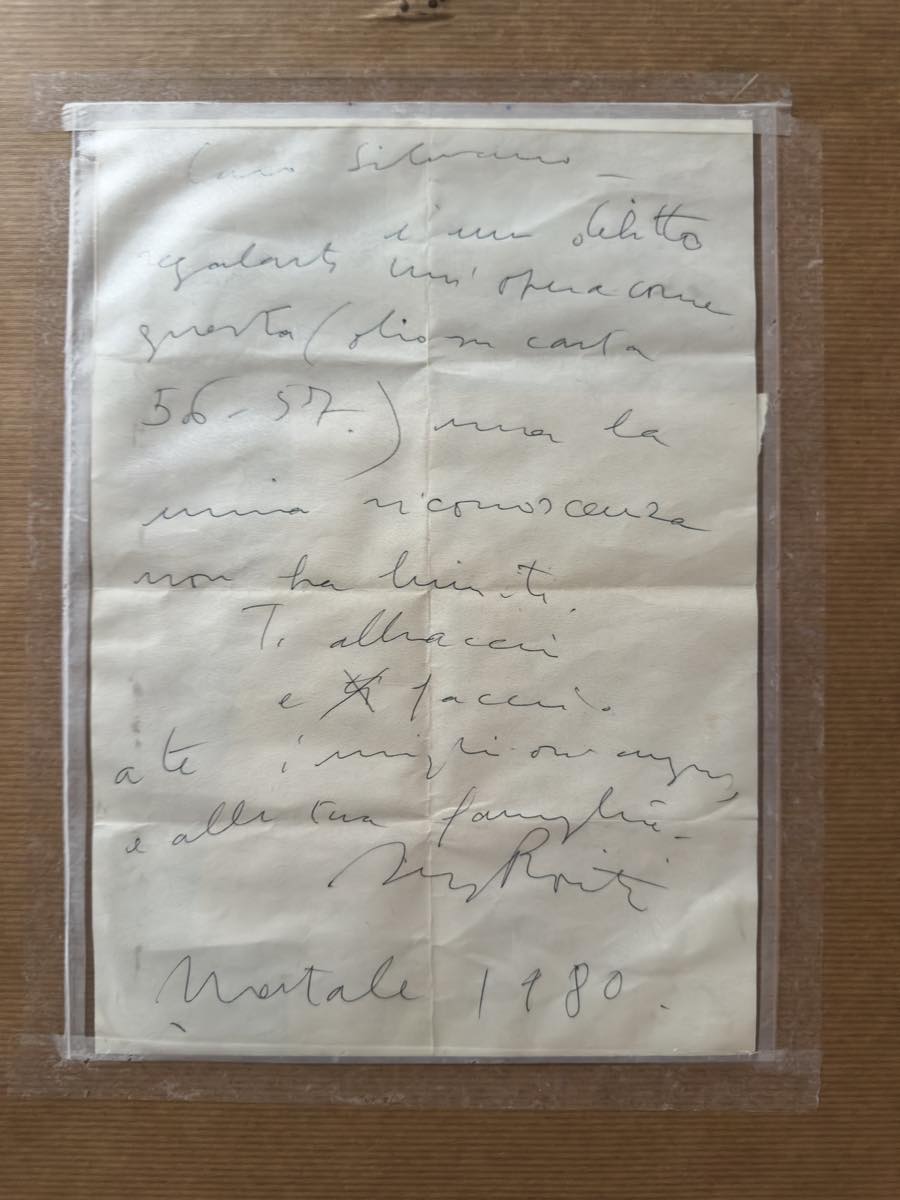 Caro Silvano –
è un delitto
regalarti un'opera come
questa (olio su carta
56-57.) ma la
mia riconoscenza
non ha limiti.
Ti abbraccio
e faccio
a te i migliori auguri
e alla tua famiglia –
Natale 1980.